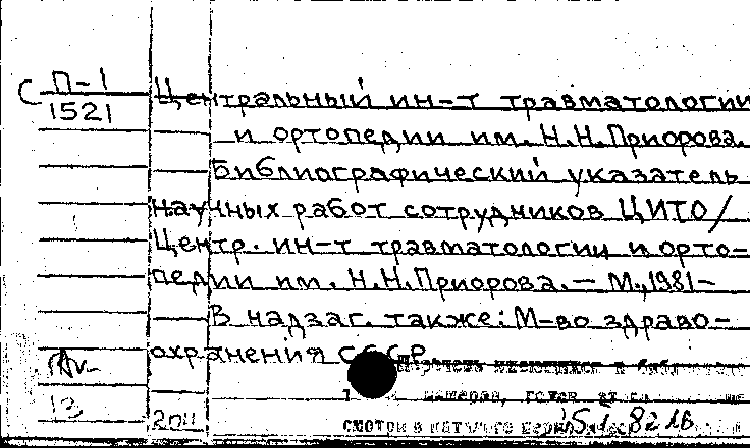 С П-1
1521
Центральный ин-т травматологии
и ортопедии им. Н.Н.Приорова.
Библиографический указатель
научных работ сотрудников ЦИТО/
Центр. ин-т травматологии и орто-
педии им. Н.Н.Приорова. — М., 1981-
В надзаг. также: М-во здраво-
охранения СССР
в библиотеке
номеров,
13
2011
смотри в каталоге